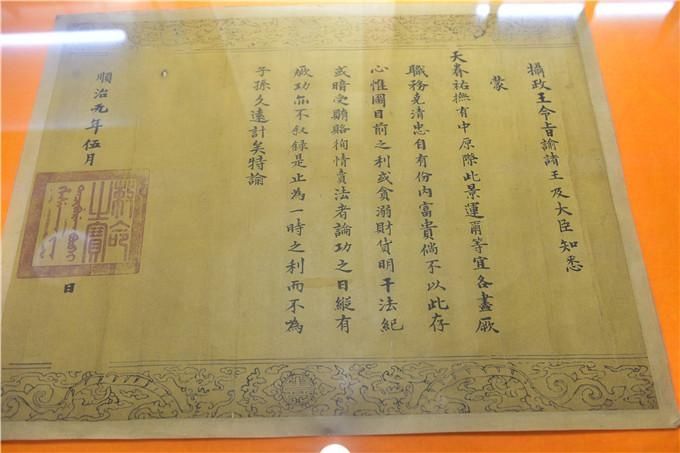 攝政王令旨諭諸王及大臣知悉
蒙
天眷祐撫有中原際此景運爾等宜各盡厥
職務克清忠自有份內富貴倘不以此存
心惟圖目前之利或貪溺財貨明干法紀
或暗受賄賂狥情賣法者論功之日縱有
厥功亦不叙錄是止為一時之利而不為
子孫久遠計矣特諭
順治元年伍月 日
敕命之寶